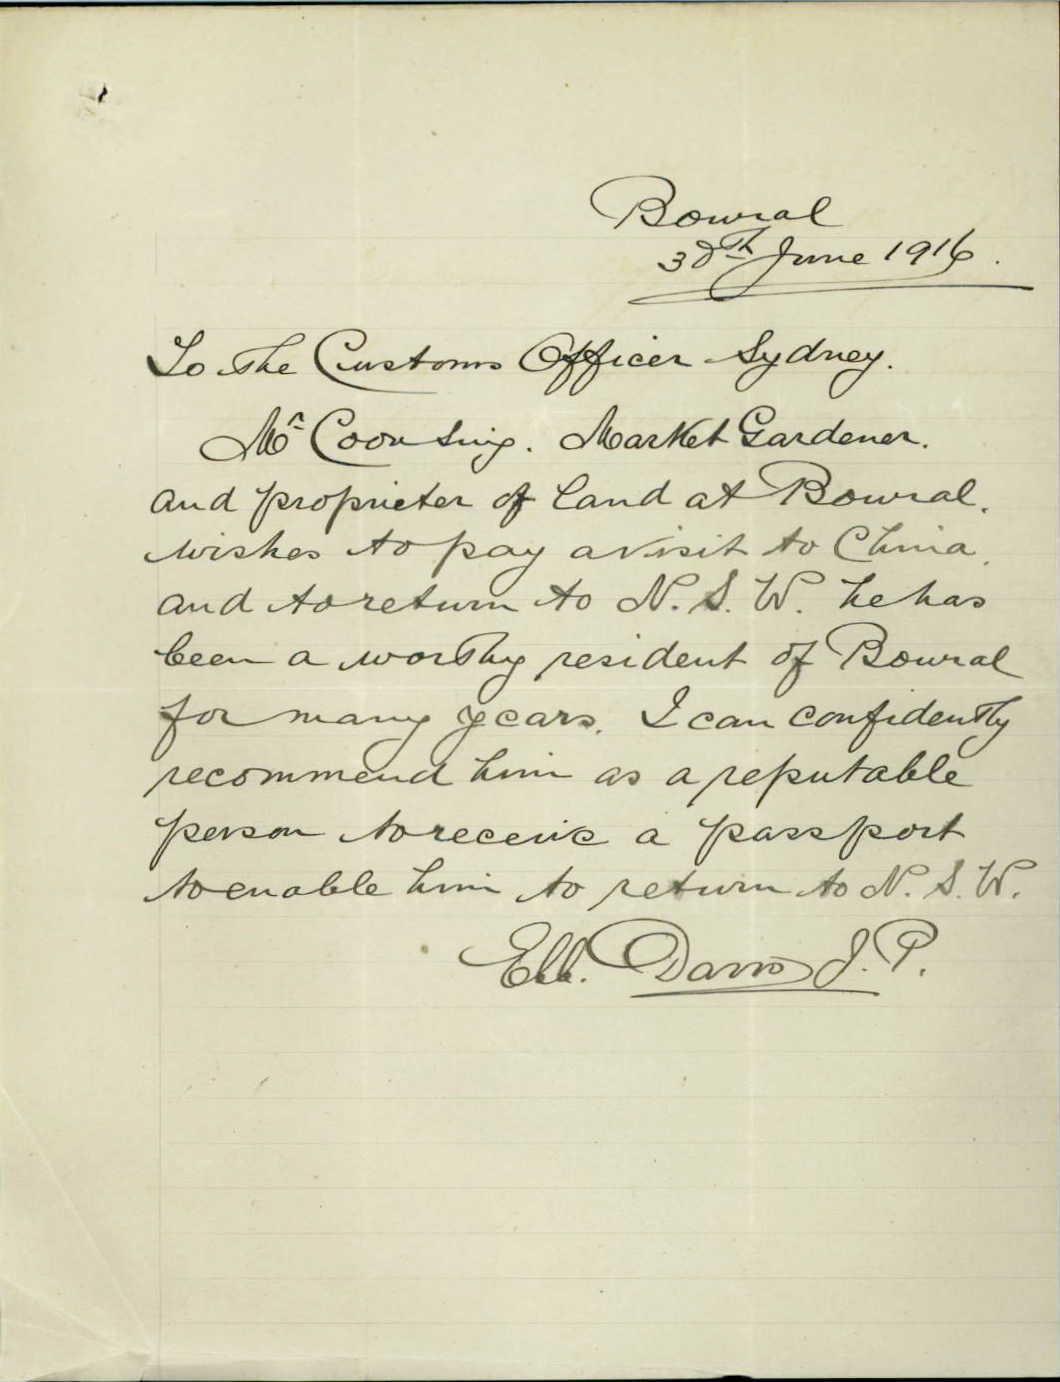 Bowral
30th June 1916.
To the Customs Officer Sydney.
Mr Coon Sing. Market Gardener.
and proprieter of land at Bowral.
wishes to pay a visit to China.
and to return to N. S. W. he has
been a worthy resident of Bowral
for many years. I can confidently
recommend him as a reputable
person to receive a passport
to enable him to return to N. S. W.
Davis J. P.